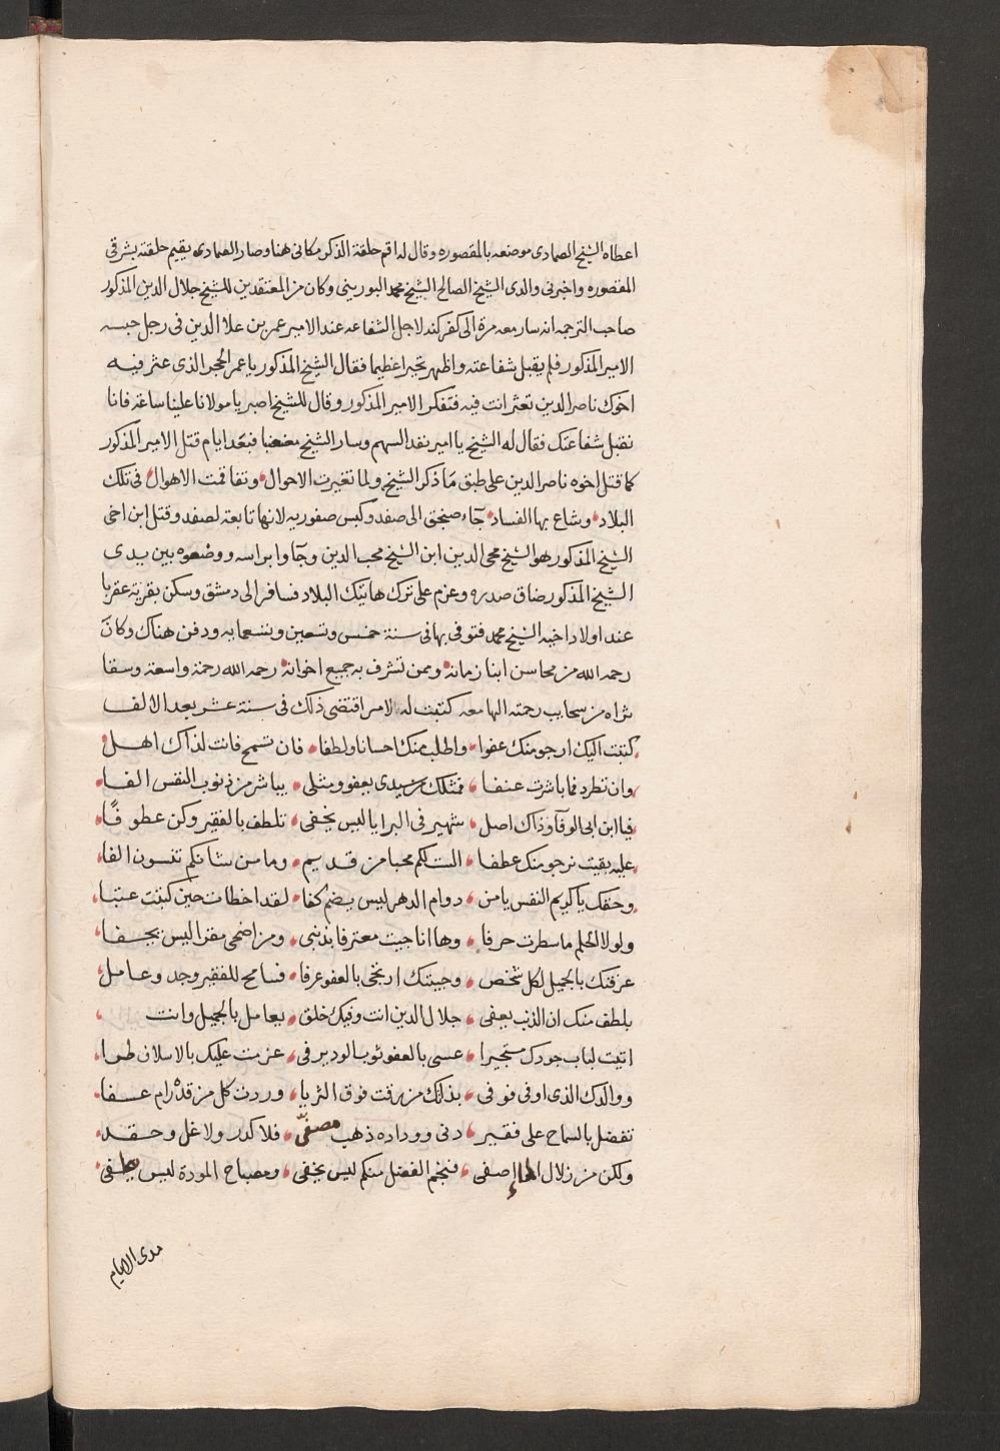 اعطاه الشيخ الصمادى موضعه بالمقصوره وقال له اقم حلقة الذكر مكانى هنا وصار الصمادى يقيم حلقته بشرقى
المقصوره واخبرنى والدى الشيخ الصالح الشيخ محمد البورينى وكان من المعتقدين للشيخ جلال الدين المذكور
صاحب الترجمه انه سار معه مرة الى كفركند لاجل الشفاعه عند الامير عمر بن علا الدين فى رجل حبسه
الامير المذكور فلم يقبل شفاعته واظهر تجبرا عظيما فقال الشيخ المذكور يا عمر الحجر الذى عثر فيه
اخوك ناصر الدين تعثر انت فيه فتفكر الامير المذكور وقال للشيخ اصبر يا مولانا علينا ساعة فانا
نقبل شفاعتك فقال له الشيخ يا امير نفد السهم وسار الشيخ مغضبا فبعد ايام قتل الامير المذكور
كما قتل اخوه ناصر الدين على طبق ما ذكر الشيخ ولما تغيرت الاحوال وتفاقمت الاهوال فى تلك
البلاد وشاع بها الفساد جاء صنجق الى صفد وكبس صفوريه لانها تابعة لصفد وقتل ابن اخى
الشيخ المذكور هو الشيخ محى الدين ابن الشيخ محب الدين وجاوا براسه ووضعوه بين يدى
الشيخ المذكور ضاق صدره وعزم على ترك هاتيك البلاد فسافر الى دمشق وسكن بقرية عقربا
عند اولاد اخيه الشيخ محمد فتوفى بها فى سنة خمس وتسعين وتسعمايه ودفن هناك وكان
رحمه الله من محاسن ابنا زمانه وممن تشرف به جميع اخوانه رحمه الله رحمة واسعة وسقا
ثراه من سحايب رحمته الهامعه كتبت له لامر اقتضى ذلك فى سنة عشر بعد الالف
كتبت اليك ارجو منك عفوا واطلب منك احسانا ولطفا فان تسمح فانت لذاك اهل
وان تطرد فما باشرت عنفا فمثلك سيدى يعفو ومثلى يباشر من ذنوب النفس الفا
فيا ابن ابى الوفا وذاك اصل شهير فى البرايا ليس يخفى تلطف بالفقير وكن عطوفا
عليه بقيت نرجو منك عطفا الست لكم محبا من قديم وما من شانكم تنسون الفا
وحقك يا كريم النفس يا من دوام الدهر ليس يضم كفا لقد اخطات حين كتبت عتبا
ولولا الحلم ما سطرت حرفا وها انا جيت معترفا بذنبى ومن اضحى مقرا ليس يجفا
عرفتك بالجميل لكل شخص وجيتك ارتجى بالعفو عرفا فسامح للفقير وجد وعامل
بلطف منك ان الذنب يعفى جلال الدين انت وفيك خلق يعامل بالجميل وانت
اتيت لباب جودك مستجيرا عسى بالعفو ثوب الود يرفى عزمت عليك بالاسلاف طرا
ووالدك الذى اوفى فوفى بذلك من رقت فوق الثريا وردت كل من قد رام عسفا
تفضل بالسماح على فقير دنى ووداده ذهب مصفى فلا كدر ولا غل وحقد
ولكن من زلال الماء اصفى فنجم الفضل منكم ليس يخفى ومصباح المودة ليس يطفى
مدى الايام